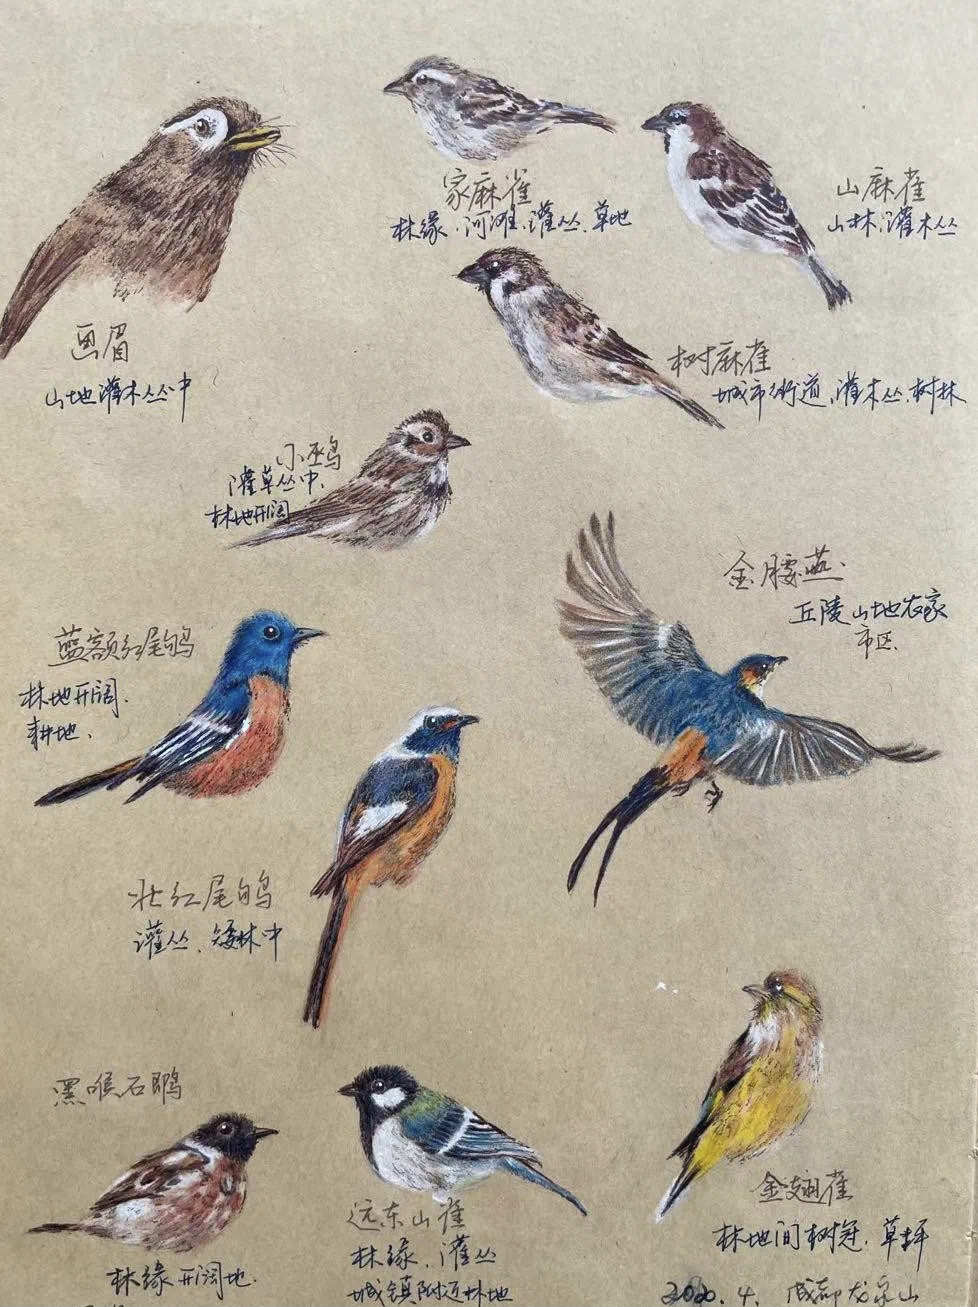 家麻雀
林缘.河滩.灌丛.草地
山麻雀
山林.灌木丛
画眉
山地灌木丛中
树麻雀
城市街道、灌木丛.树林
小鹀
灌草丛中.
林地开阔
金腰燕.
丘陵山地农家
市区.
蓝额红尾鸲
林地开阔.
耕地.
北红尾鸲
灌丛、矮林中
黑喉石䳭
林缘开阔地.
远东山雀
林缘、灌丛
城镇附近林地
金翅雀
林地间树冠.草坪
2020.4.成都龙泉山